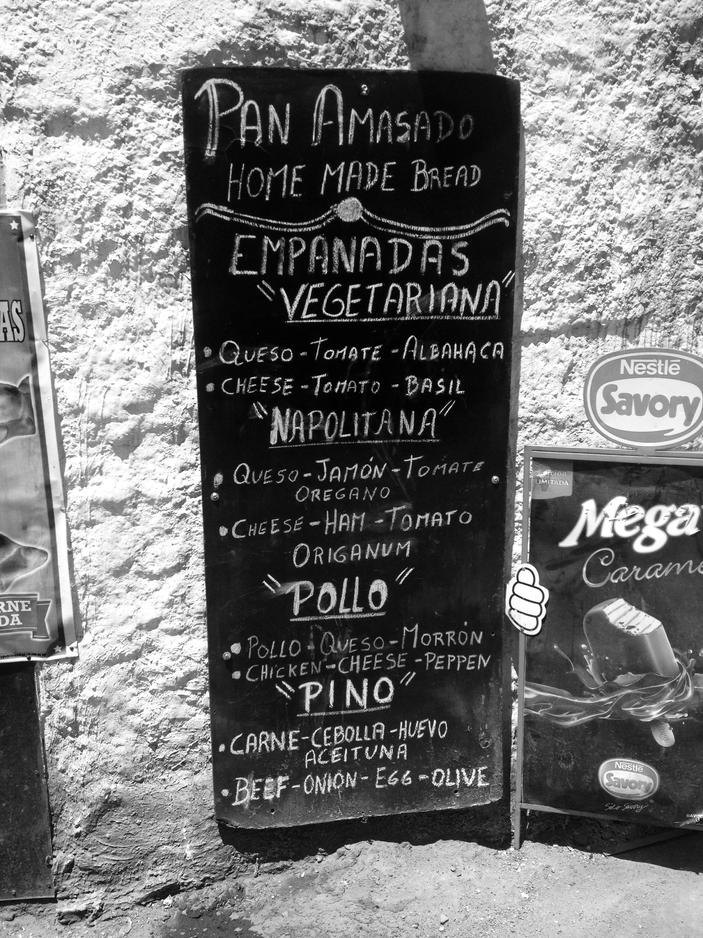 PAN AMASADO
HOME MADE BREAD
EMPANADAS
"VEGETARIANA"
• QUESO-TOMATE-ALBAHACA
• CHEESE-TOMATO-BASIL
"NAPOLITANA"
QUESO-JAMÓN-TOMATE
OREGANO
• CHEESE-HAM-TOMATO
ORIGANUM
"POLLO"
• POLLO-QUESO-MORRÓN
• CHICKEN-CHEESE-PEPPEN
"PINO"
• CARNE-CEBOLLA-HUEVO
ACEITUNA
• BEEF-ONION-EGG-OLIVE
AS
RNE
DA
Nestlé
Savory
LIMITADA
Mega
Carame
Nestlé
Savory